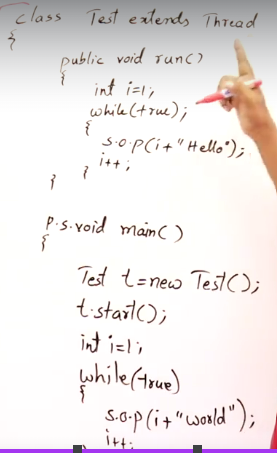 Class Test extends Thread
{
public void run()
{
int i=1;
while(true);
{
S.O.P(i+"Hello");
i++;
}
}
P.S.void main()
{
Test t=new Test();
t.start();
int i=1;
while(true)
{
S.O.P(i+"world");
i++;